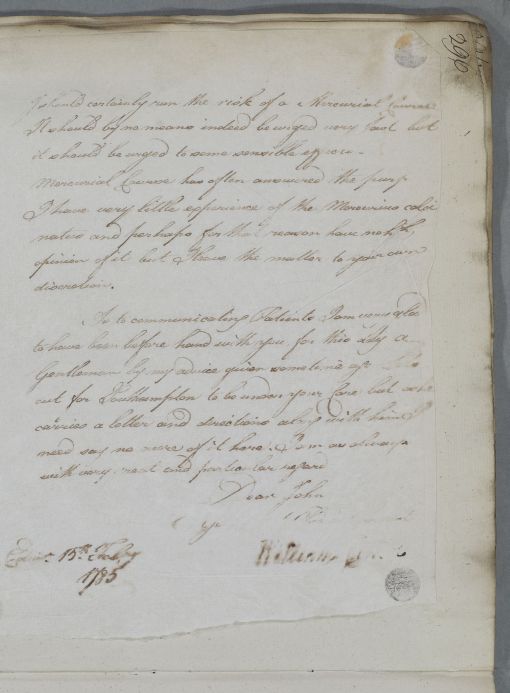 296
I should certainly run the risk of a Mercurial Course
It should by no means indeed be urged very fast but
it should be urged to some sensible effect
Mercurial Course has often answered the purp
I have very little experience of the Mercurius calci
natus and perhaps for that reason have no high
opinion of it but I leave the matter to your own
discretion.
As to communicating Patients I am very glad
to have been before hand with you for this day a
Gentleman by my advice given sometime ago
out for Southampton to be under your Care but as he
carries a letter and directions along with him I
need say no more of it here. I am as always
with very great and particular regard
Dear John
William
Edinr. 15th. Feb.y
1785